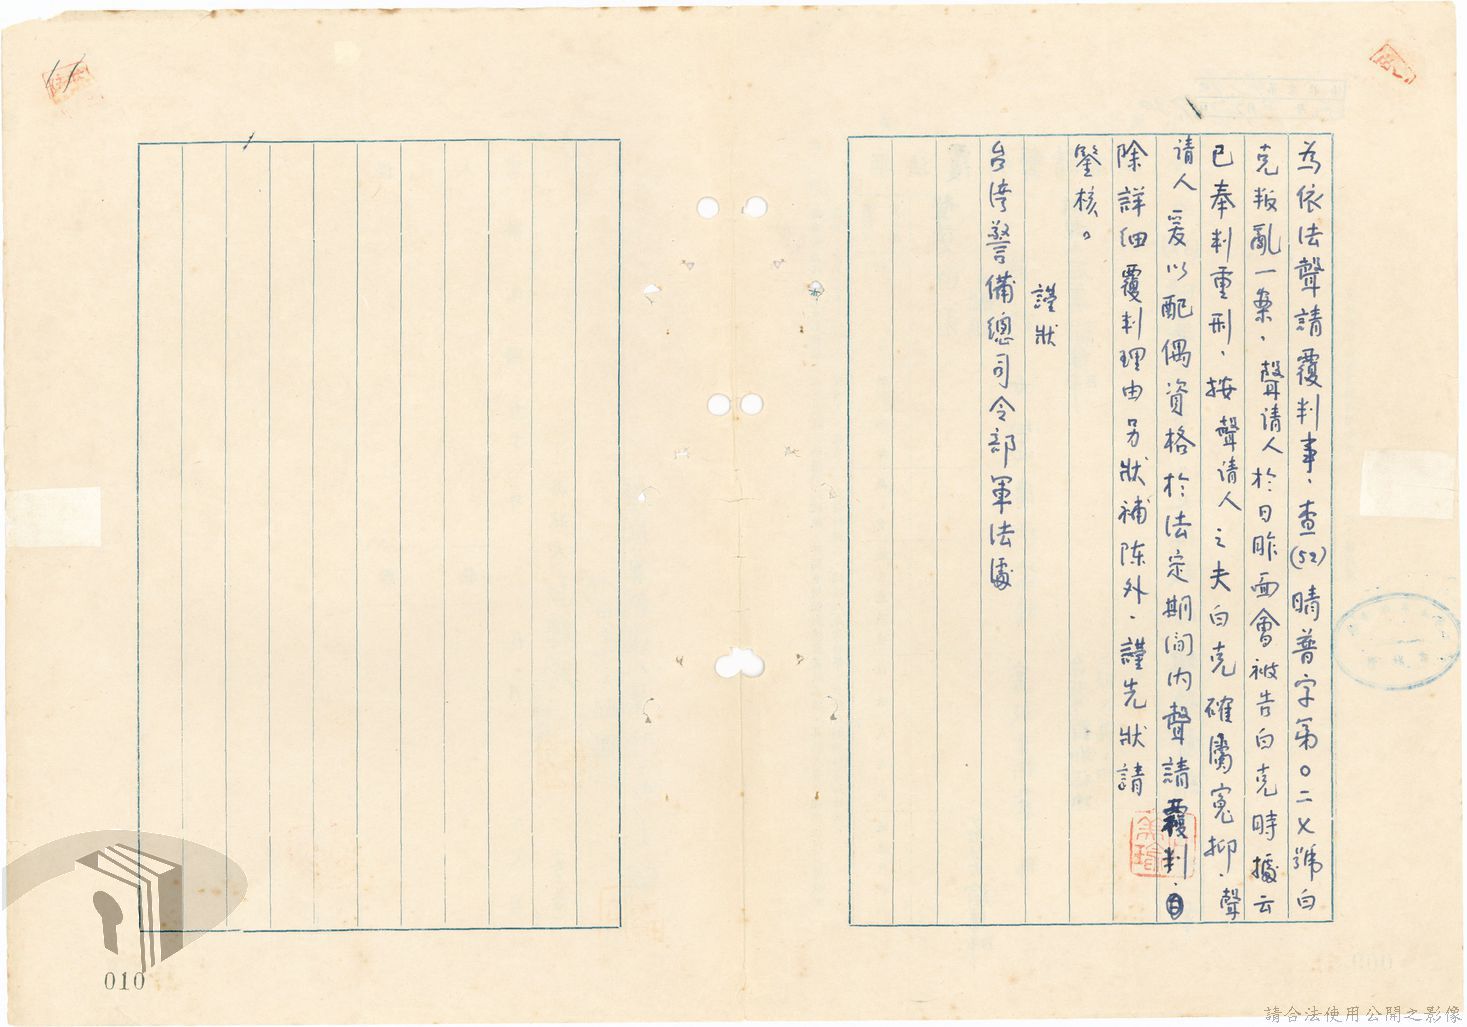 為依法聲請覆判事、查(52)晴普字第〇二乂號白
克叛亂一案、聲請人於日昨面會被告白克時據云
已奉判重刑、按聲請人之夫白克確屬寃抑、聲
請人爰以配偶資格於法定期間內聲請覆判、
除詳細覆判理由另狀補陳外、謹先狀請
鑒核。
謹狀
台湾警備總司令部軍法處
010
請合法使用公開之影像